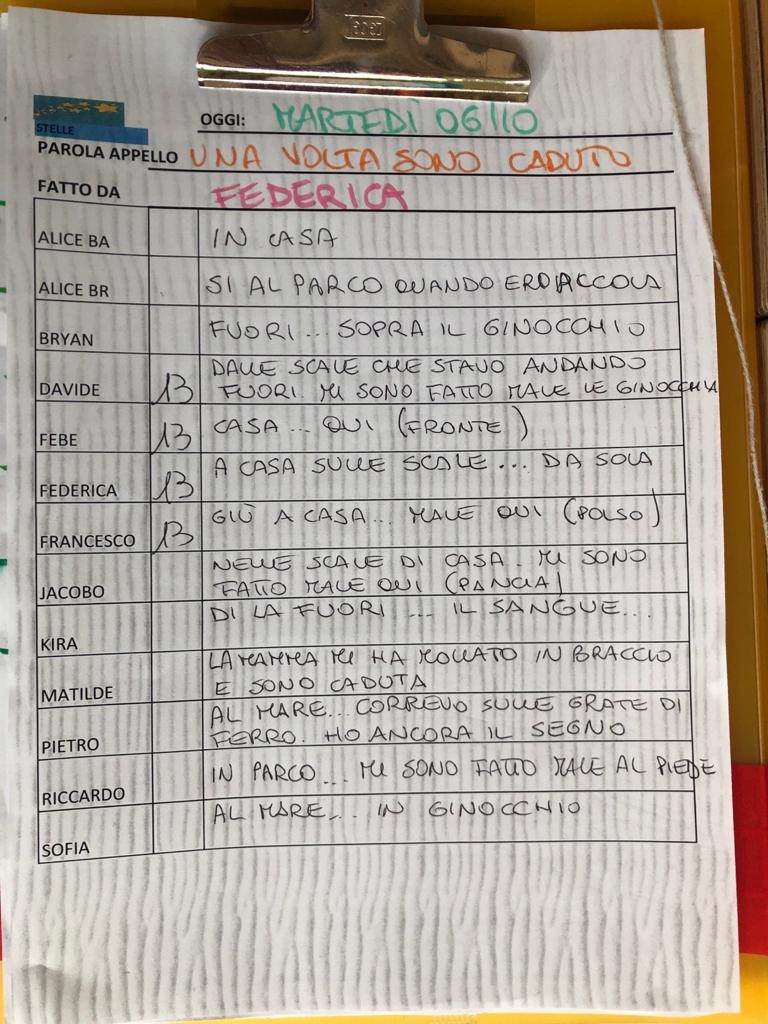 STELLE
OGGI: MARTEDÌ 06/10
PAROLA APPELLO UNA VOLTA SONO CADUTO
FATTO DA FEDERICA
ALICE BA IN CASA
ALICE BR SI AL PARCO QUANDO ERO PICCOLA
BRYAN FUORI... SOPRA IL GINOCCHIO
DAVIDE 13 DALLE SCALE CHE STAVO ANDANDO
FUORI. MI SONO FATTO MALE LE GINOCCHIA
FEBE 13 CASA... QUI (FRONTE)
FEDERICA 13 A CASA SULLE SCALE... DA SOLA
FRANCESCO 13 GIÙ A CASA... MALE QUI (POLSO)
JACOBO NELLE SCALE DI CASA. MI SONO
FATTO MALE QUI (PANCIA)
KIRA DI LA FUORI... IL SANGUE...
MATILDE LA MAMMA MI HA MOLLATO IN BRACCIO
E SONO CADUTA
PIETRO AL MARE... CORREVO SULLE GRATE DI
FERRO. HO ANCORA IL SEGNO
RICCARDO IN PARCO... MI SONO FATTO MALE AL PIEDE
SOFIA AL MARE... IN GINOCCHIO